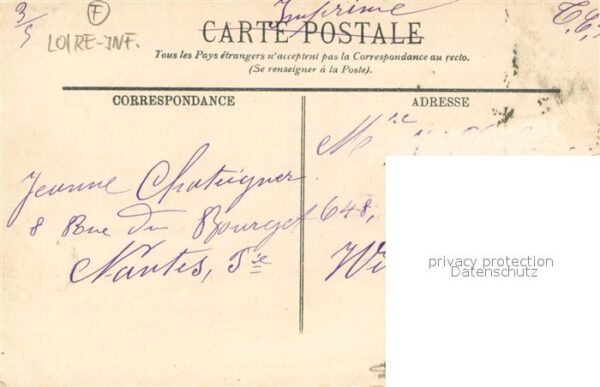 3/5
F
LOIRE-INF.
Imprimé
CARTE POSTALE
Tous les Pays étrangers n'acceptent pas la Correspondance au recto.
(Se renseigner à la Poste).
CORRESPONDANCE
Jeanne Chatuigner
8 Rue du Bourget
Nantes,
ADRESSE
Mlle
648,
Wi
privacy protection
Datenschutz